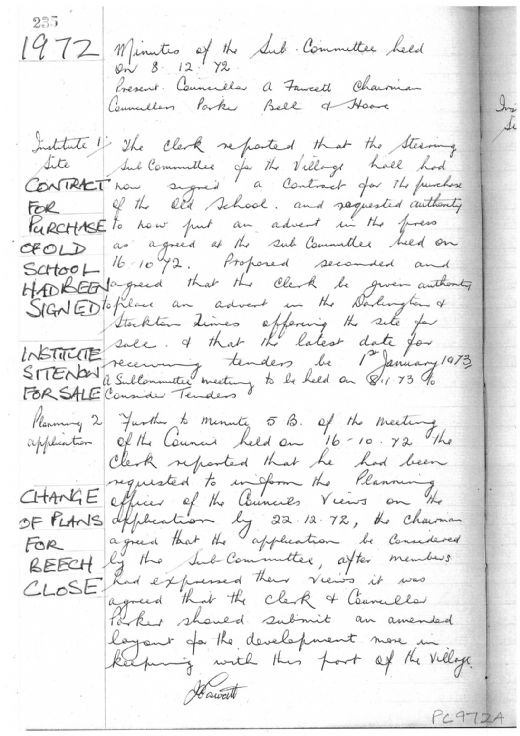 235
1972
Minutes of the Sub. Committee held
on 8. 12. 72.
Present. Councillor A Fawcett Chairman
Councillors Parker Bell & Hoare
Institute 1
Site
The Clerk reported that the Steering
Sub Committee for the Village hall had
now signed a Contract for the purchase
of the Old School. and requested authority
to now put an advert in the press
as agreed at the Sub Committee held on
16-10-72. Proposed seconded and
agreed that the Clerk be given authority
to place an advert in the Darlington &
Stockton Times offering the site for
sale. & that the latest date for
receiving tenders be 1st January 1973,
A SubCommittee meeting to be held on 8.1.73 to
Consider Tenders
CONTRACT
FOR
PURCHASE
OF OLD
SCHOOL
HAD BEEN
SIGNED
INSTITUTE
SITE NOW
FOR SALE
Planning 2
application
Further to Minute 5 B. of the Meeting
of the Council held on 16-10-72 the
Clerk reported that he had been
requested to inform the Planning
officer of the Councils Views on the
application by 22.12.72, the chairman
agreed that the application be considered
by the Sub-Committee, after members
had expressed their views it was
agreed that the clerk & Councillor
Parker should submit an amended
layout for the development more in
keeping with this part of the Village.
CHANGE
OF PLANS
FOR
BEECH
CLOSE
PC972A